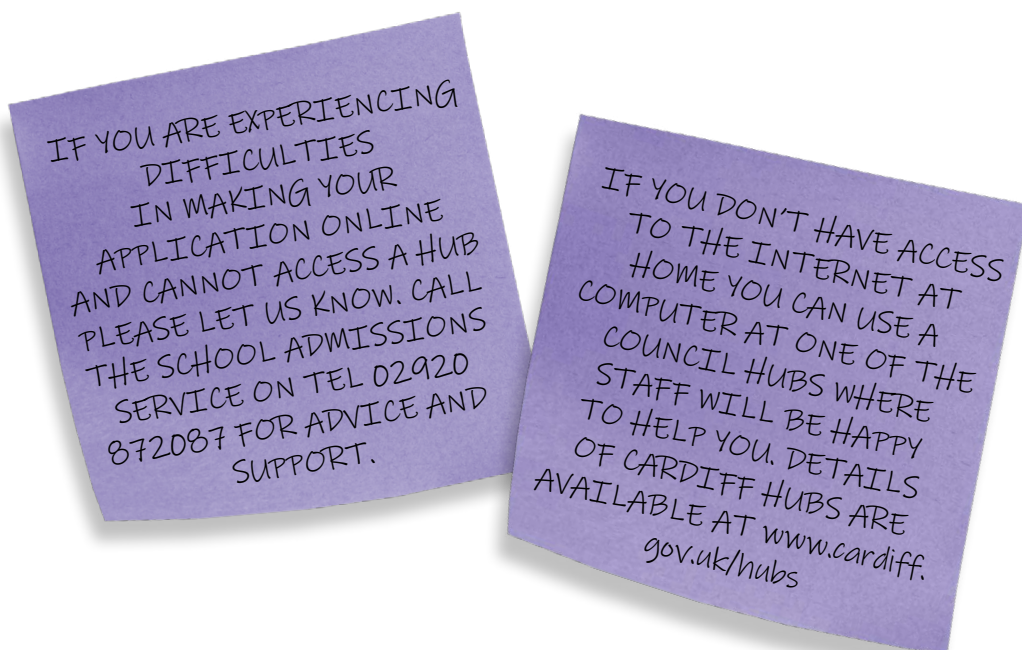 IF YOU ARE EXPERIENCING
DIFFICULTIES
IN MAKING YOUR
APPLICATION ONLINE
AND CANNOT ACCESS A HUB
PLEASE LET US KNOW. CALL
THE SCHOOL ADMISSIONS
SERVICE ON TEL 02920
872087 FOR ADVICE AND
SUPPORT.
IF YOU DON'T HAVE ACCESS
TO THE INTERNET AT
HOME YOU CAN USE A
COMPUTER AT ONE OF THE
COUNCIL HUBS WHERE
STAFF WILL BE HAPPY
TO HELP YOU. DETAILS
OF CARDIFF HUBS ARE
AVAILABLE AT www.cardiff.
gov.uk/hubs